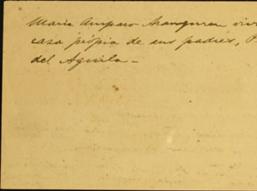 Maria Amparo Aranguren viv
casa propia de sus padres, P
del Aguila -